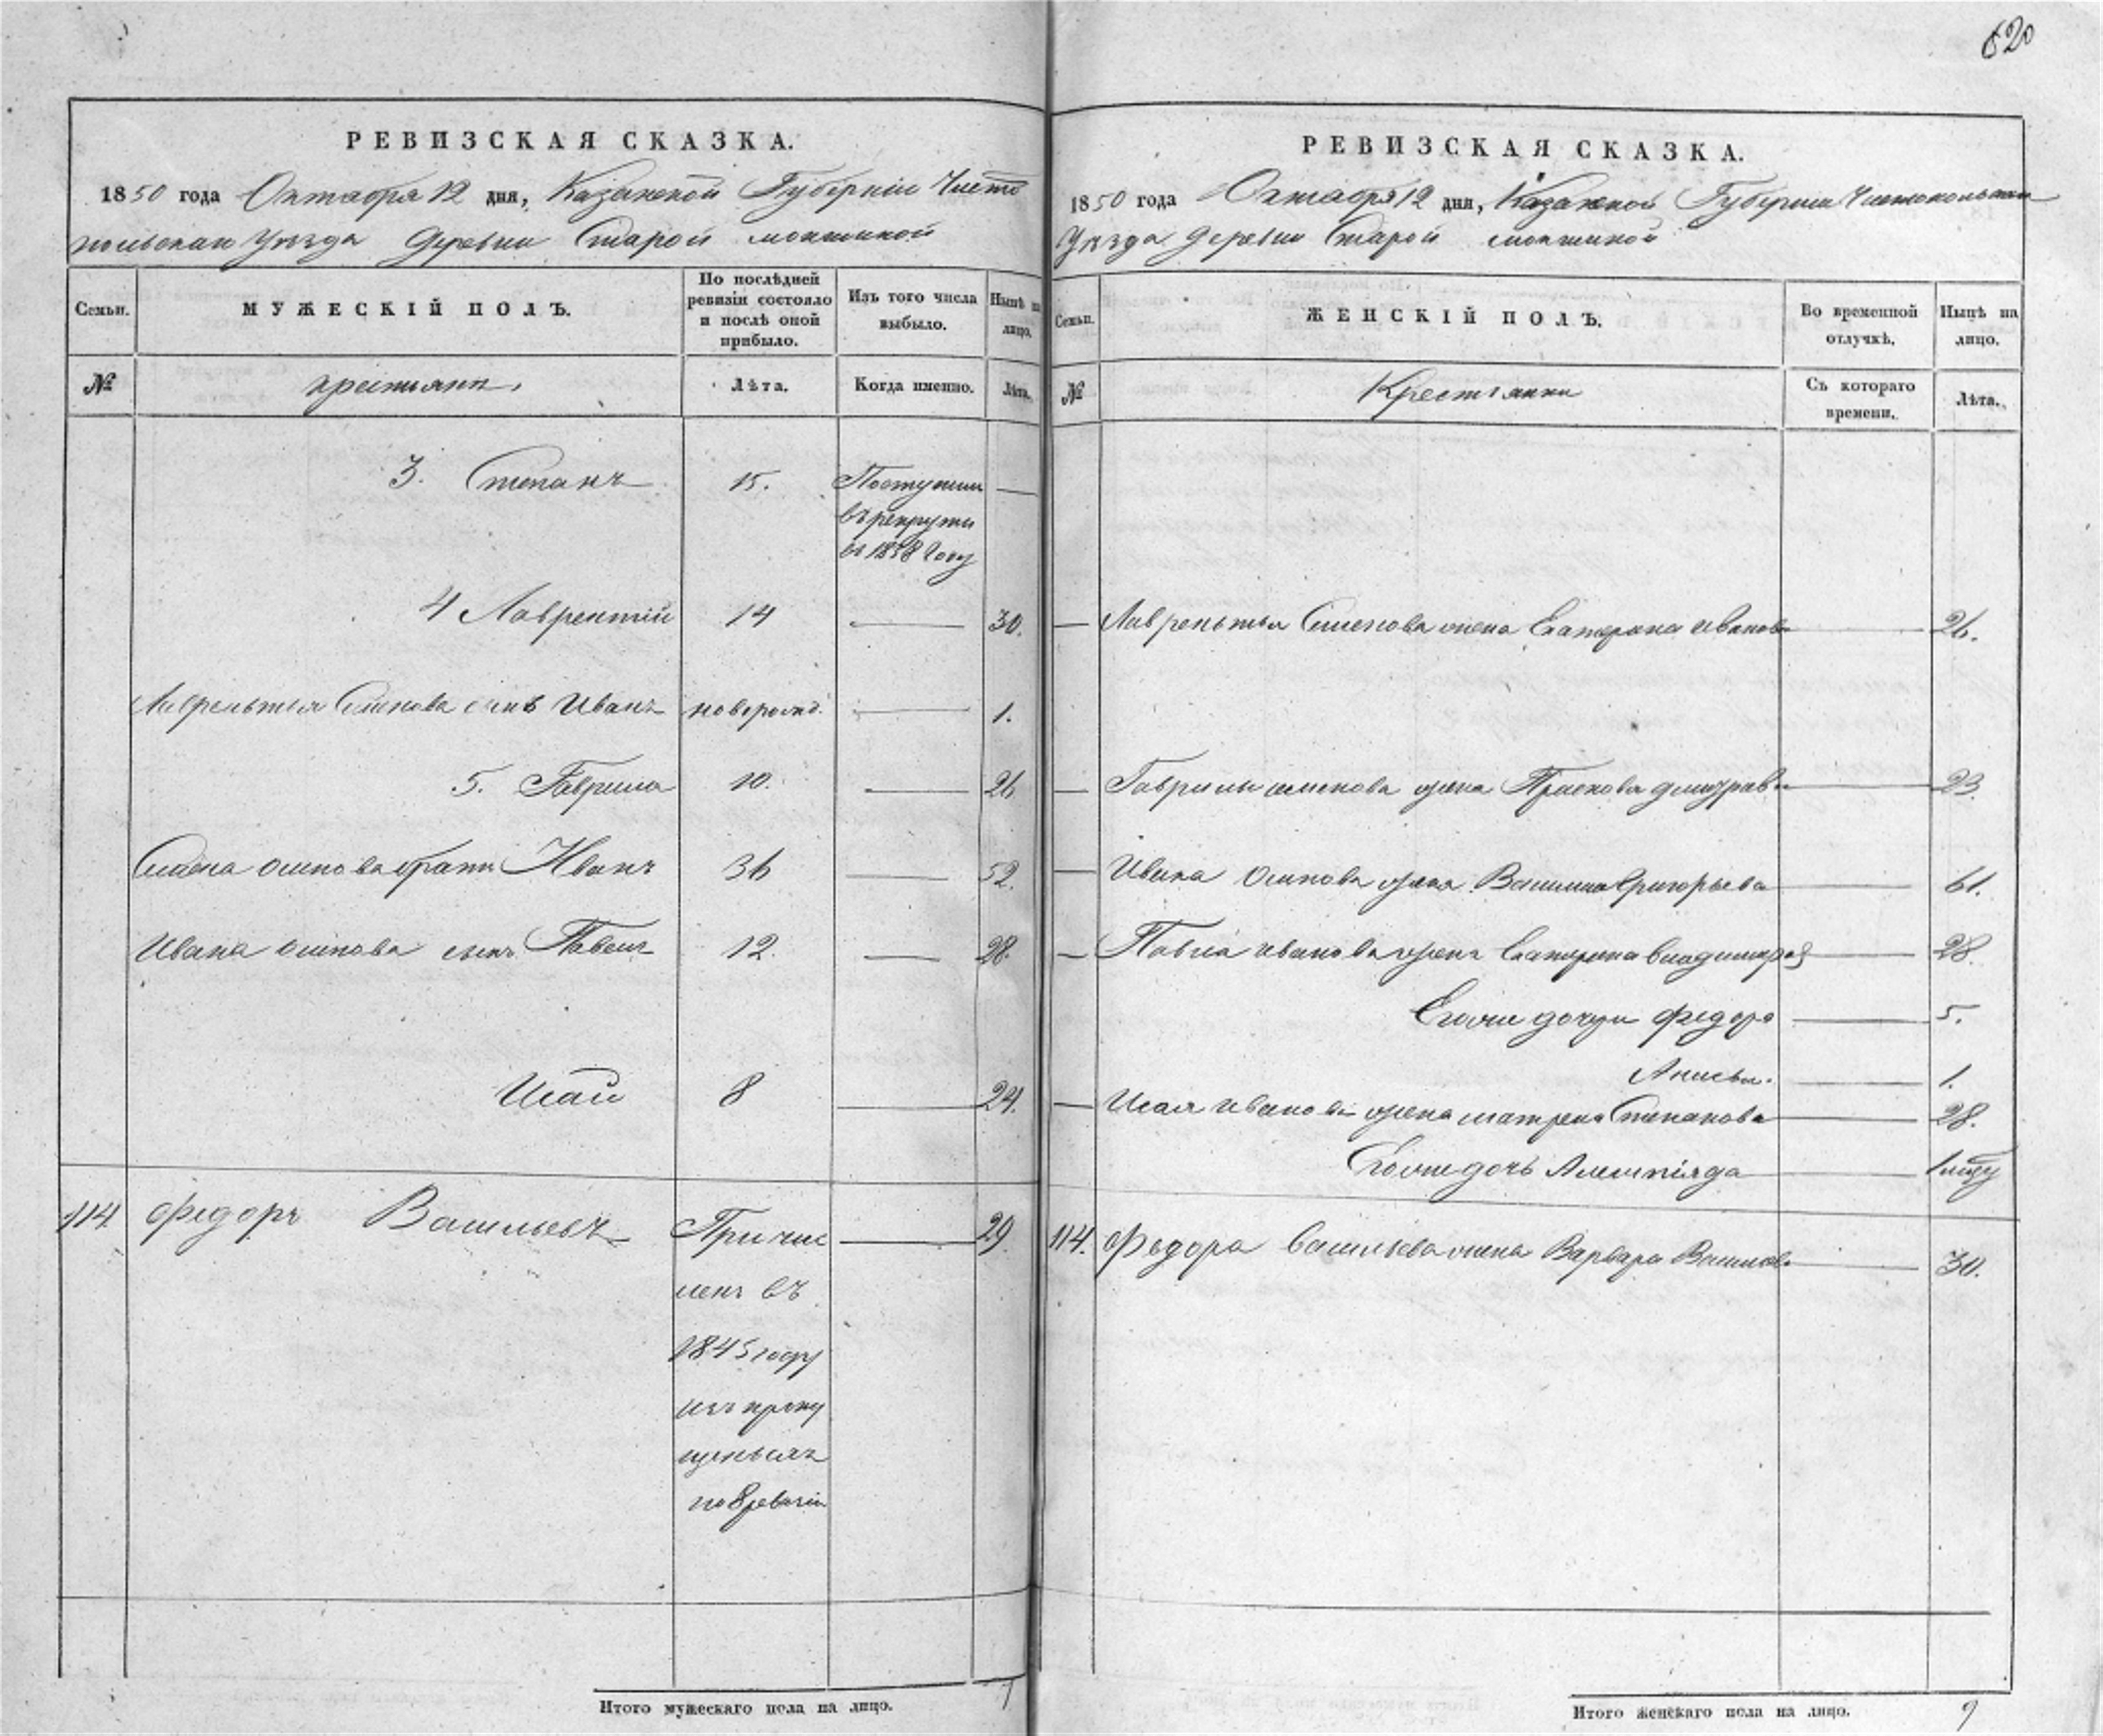 620
РЕВИЗСКАЯ СКАЗКА.
1850 года Октября 12 дня, Казанской Губерніи Чисто
польскаго Уезда Деревни Старой мокшиной
Семьи. МУЖЕСКІЙ ПОЛЪ. По послѣдней ревизіи состояло и послѣ оной прибыло. Изъ того числа выбыло. Нынѣ на лицо.
№ крестьяне. Лѣта. Когда именно. Лѣта.
3. Степанъ 15. Поступилъ —
въ рекруты
въ 1838 Году
4 Лаврентій 14 — 30.
Лаврентья Семенова сынъ Иванъ новорожд. — 1.
5. Гаврила 10. — 26
Семена осипова братъ Иванъ 36 — 52.
Ивана осипова сынъ Павелъ 12. — 28.
Исай 8 — 24.
114 Федоръ Васильевъ Причис — 29.
ленъ въ
1845 году
изъ пропу
щенныхъ
по 8 ревизіи
Итого мужескаго пола на лицо. 7
РЕВИЗСКАЯ СКАЗКА.
1850 года Октября 12 дня, Казанской Губерніи Чистопольскаго
Уезда Деревни Старой мокшиной
Семьи. ЖЕНСКІЙ ПОЛЪ. Во временной отлучкѣ. Нынѣ на лицо.
№ Крестьянки Съ котораго времени. Лѣта.
— Лаврентья Семенова жена Екатерина Иванова — 26.
— Гаврилы семенова жена Прасковья — 23.
— Ивана Осипова жена Василиса Григорьева — 61.
— Павла иванова жена Екатерина владимирова — 28.
Ево же дочери Федора — 5.
Анисья. — 1.
— Исая иванова жена матрена Степанова — 28.
Ево же дочь —
114. Федора Васильева жена Варвара — 30.
Итого женскаго пола на лицо. 9